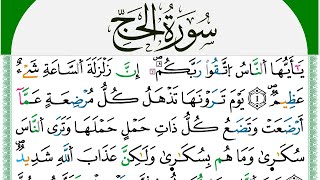 سُورَةُ الْحَجِّ
يٰۤاَيُّهَا النَّاسُ اتَّقُوْا رَبَّكُمْ ۚ اِنَّ زَلْزَلَةَ السَّاعَةِ شَىْءٌ
عَظِيْمٌ ﴿۱﴾ يَوْمَ تَرَوْنَهَا تَذْهَلُ كُلُّ مُرْضِعَةٍ عَمَّاۤ
اَرْضَعَتْ وَتَضَعُ كُلُّ ذَاتِ حَمْلٍ حَمْلَهَا وَتَرَى النَّاسَ
سُكٰرٰى وَمَا هُمْ بِسُكٰرٰى وَلٰكِنَّ عَذَابَ اللّٰهِ شَدِيْدٌ